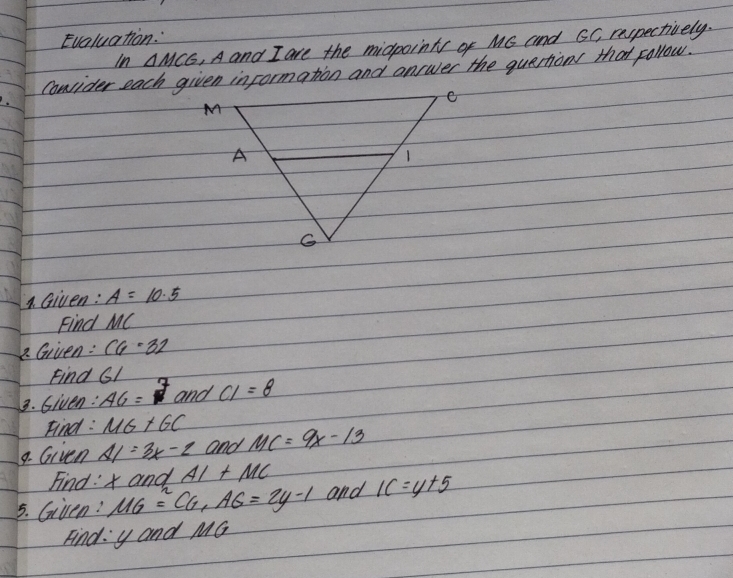 Evaluation:
In △MCG, A and I are the midpoints of MG and GC, respectively.
Consider each given information and answer the questions that follow.
M C
A I
G
1. Given: A = 10.5
Find MC
2. Given: CG = 32
Find GI
3. Given: AG = 7 and CI = 8
Find: MG + GC
4. Given AI = 3x - 2 and MC = 9x - 13
Find: x and AI + MC
5. Given: MG ≅ CG, AG = 2y - 1 and IC = y + 5
Find: y and MG